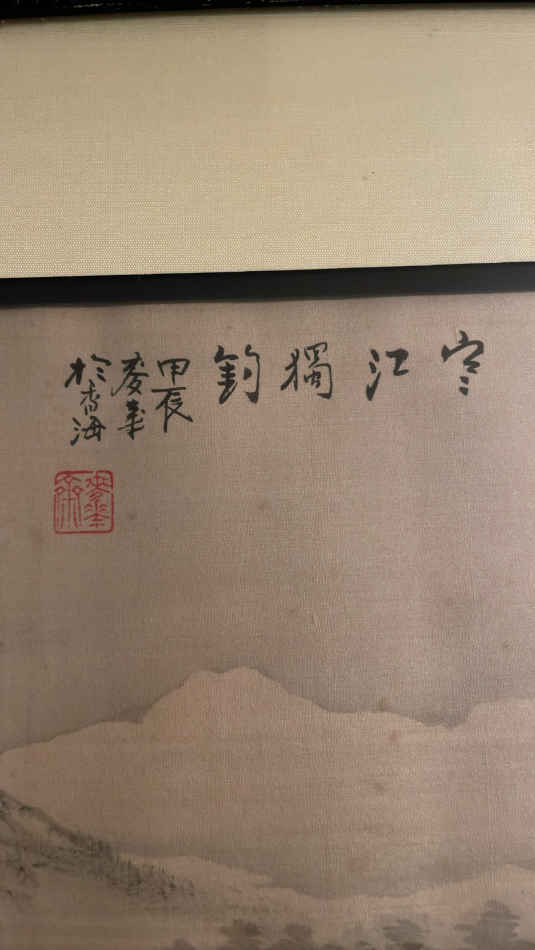 寒江獨釣
甲辰
華
於香海